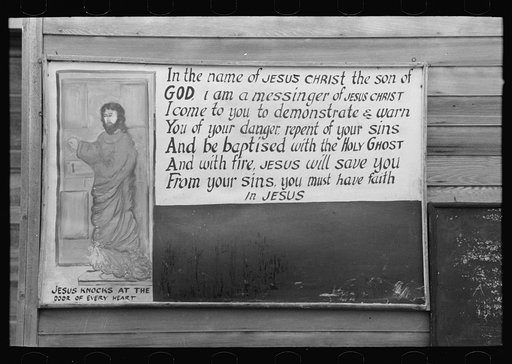 In the name of JESUS CHRIST the son of
GOD, I am a messinger of JESUS CHRIST
I come to you to demonstrate & warn
You of your danger, repent of your sins
And be baptised with the HOLY GHOST
And with fire, JESUS will save you
From your sins, you must have faith
in JESUS
JESUS KNOCKS AT THE
DOOR OF EVERY HEART